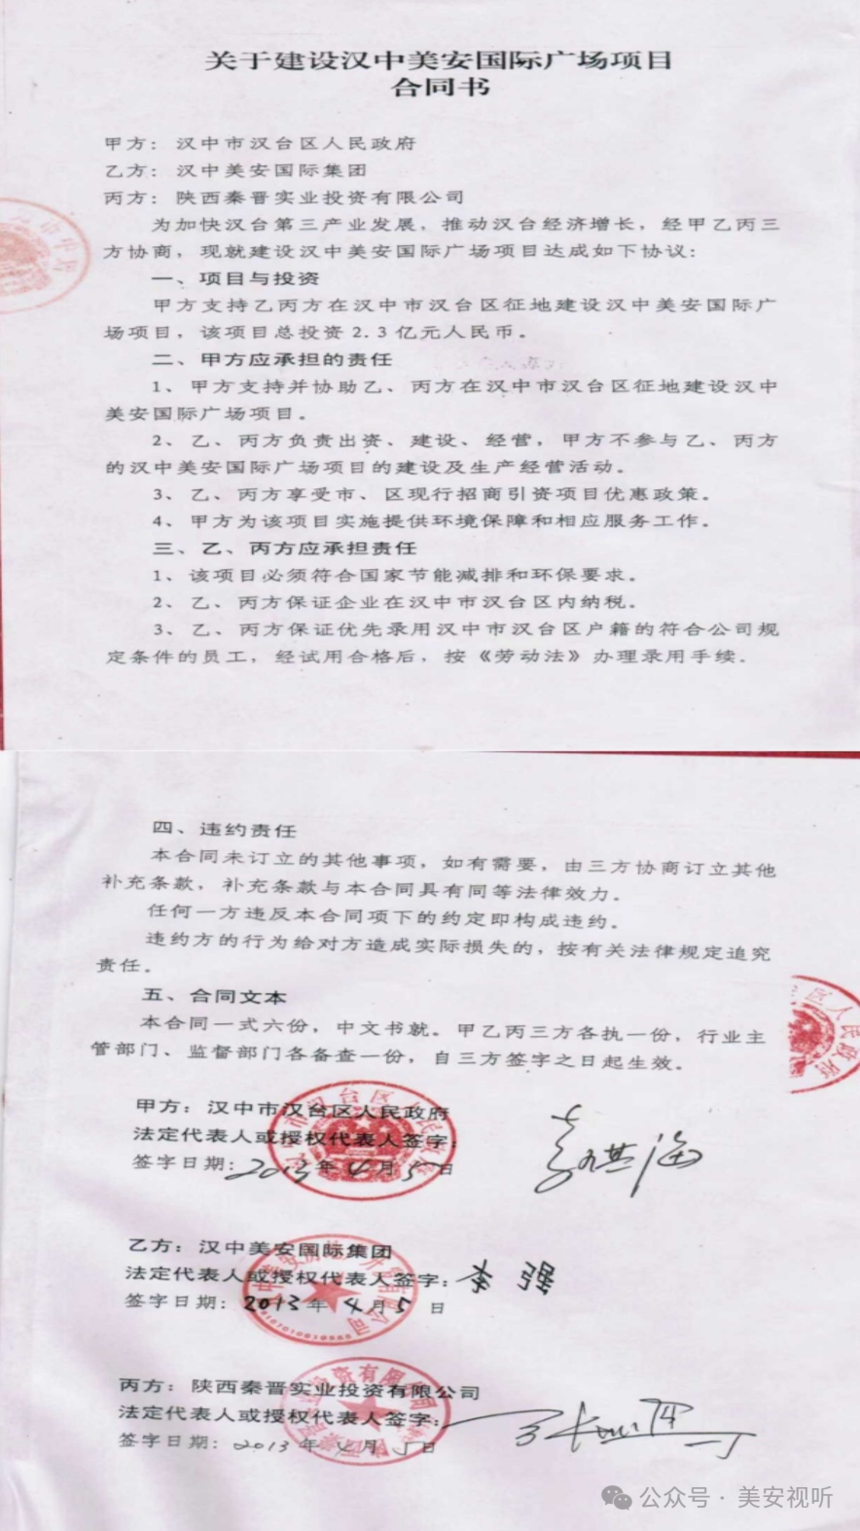 关于建设汉中美安国际广场项目
合同书
甲方：汉中市汉台区人民政府
乙方：汉中美安国际集团
丙方：陕西秦晋实业投资有限公司
为加快汉台第三产业发展，推动汉台经济增长，经甲乙丙三
方协商，现就建设汉中美安国际广场项目达成如下协议：
一、项目与投资
甲方支持乙丙方在汉中市汉台区征地建设汉中美安国际广
场项目，该项目总投资2.3亿元人民币。
二、甲方应承担的责任
1、甲方支持并协助乙、丙方在汉中市汉台区征地建设汉中
美安国际广场项目。
2、乙、丙方负责出资、建设、经营，甲方不参与乙、丙方
的汉中美安国际广场项目的建设及生产经营活动。
3、乙、丙方享受市、区现行招商引资项目优惠政策。
4、甲方为该项目实施提供环境保障和相应服务工作。
三、乙、丙方应承担责任
1、该项目必须符合国家节能减排和环保要求。
2、乙、丙方保证企业在汉中市汉台区内纳税。
3、乙、丙方保证优先录用汉中市汉台区户籍的符合公司规
定条件的员工，经试用合格后，按《劳动法》办理录用手续。
四、违约责任
本合同未订立的其他事项，如有需要，由三方协商订立其他
补充条款，补充条款与本合同具有同等法律效力。
任何一方违反本合同项下的约定即构成违约。
违约方的行为给对方造成实际损失的，按有关法律规定追究
责任。
五、合同文本
本合同一式六份，中文书就。甲乙丙三方各执一份，行业主
管部门、监督部门各备查一份，自三方签字之日起生效。
甲方：汉中市汉台区人民政府
法定代表人或授权代表人签字：
签字日期：2013年4月5日
乙方：汉中美安国际集团
法定代表人或授权代表人签字：李强
签字日期：2013年4月5日
丙方：陕西秦晋实业投资有限公司
法定代表人或授权代表人签字：
签字日期：2013年4月5日
公众号·美安视听